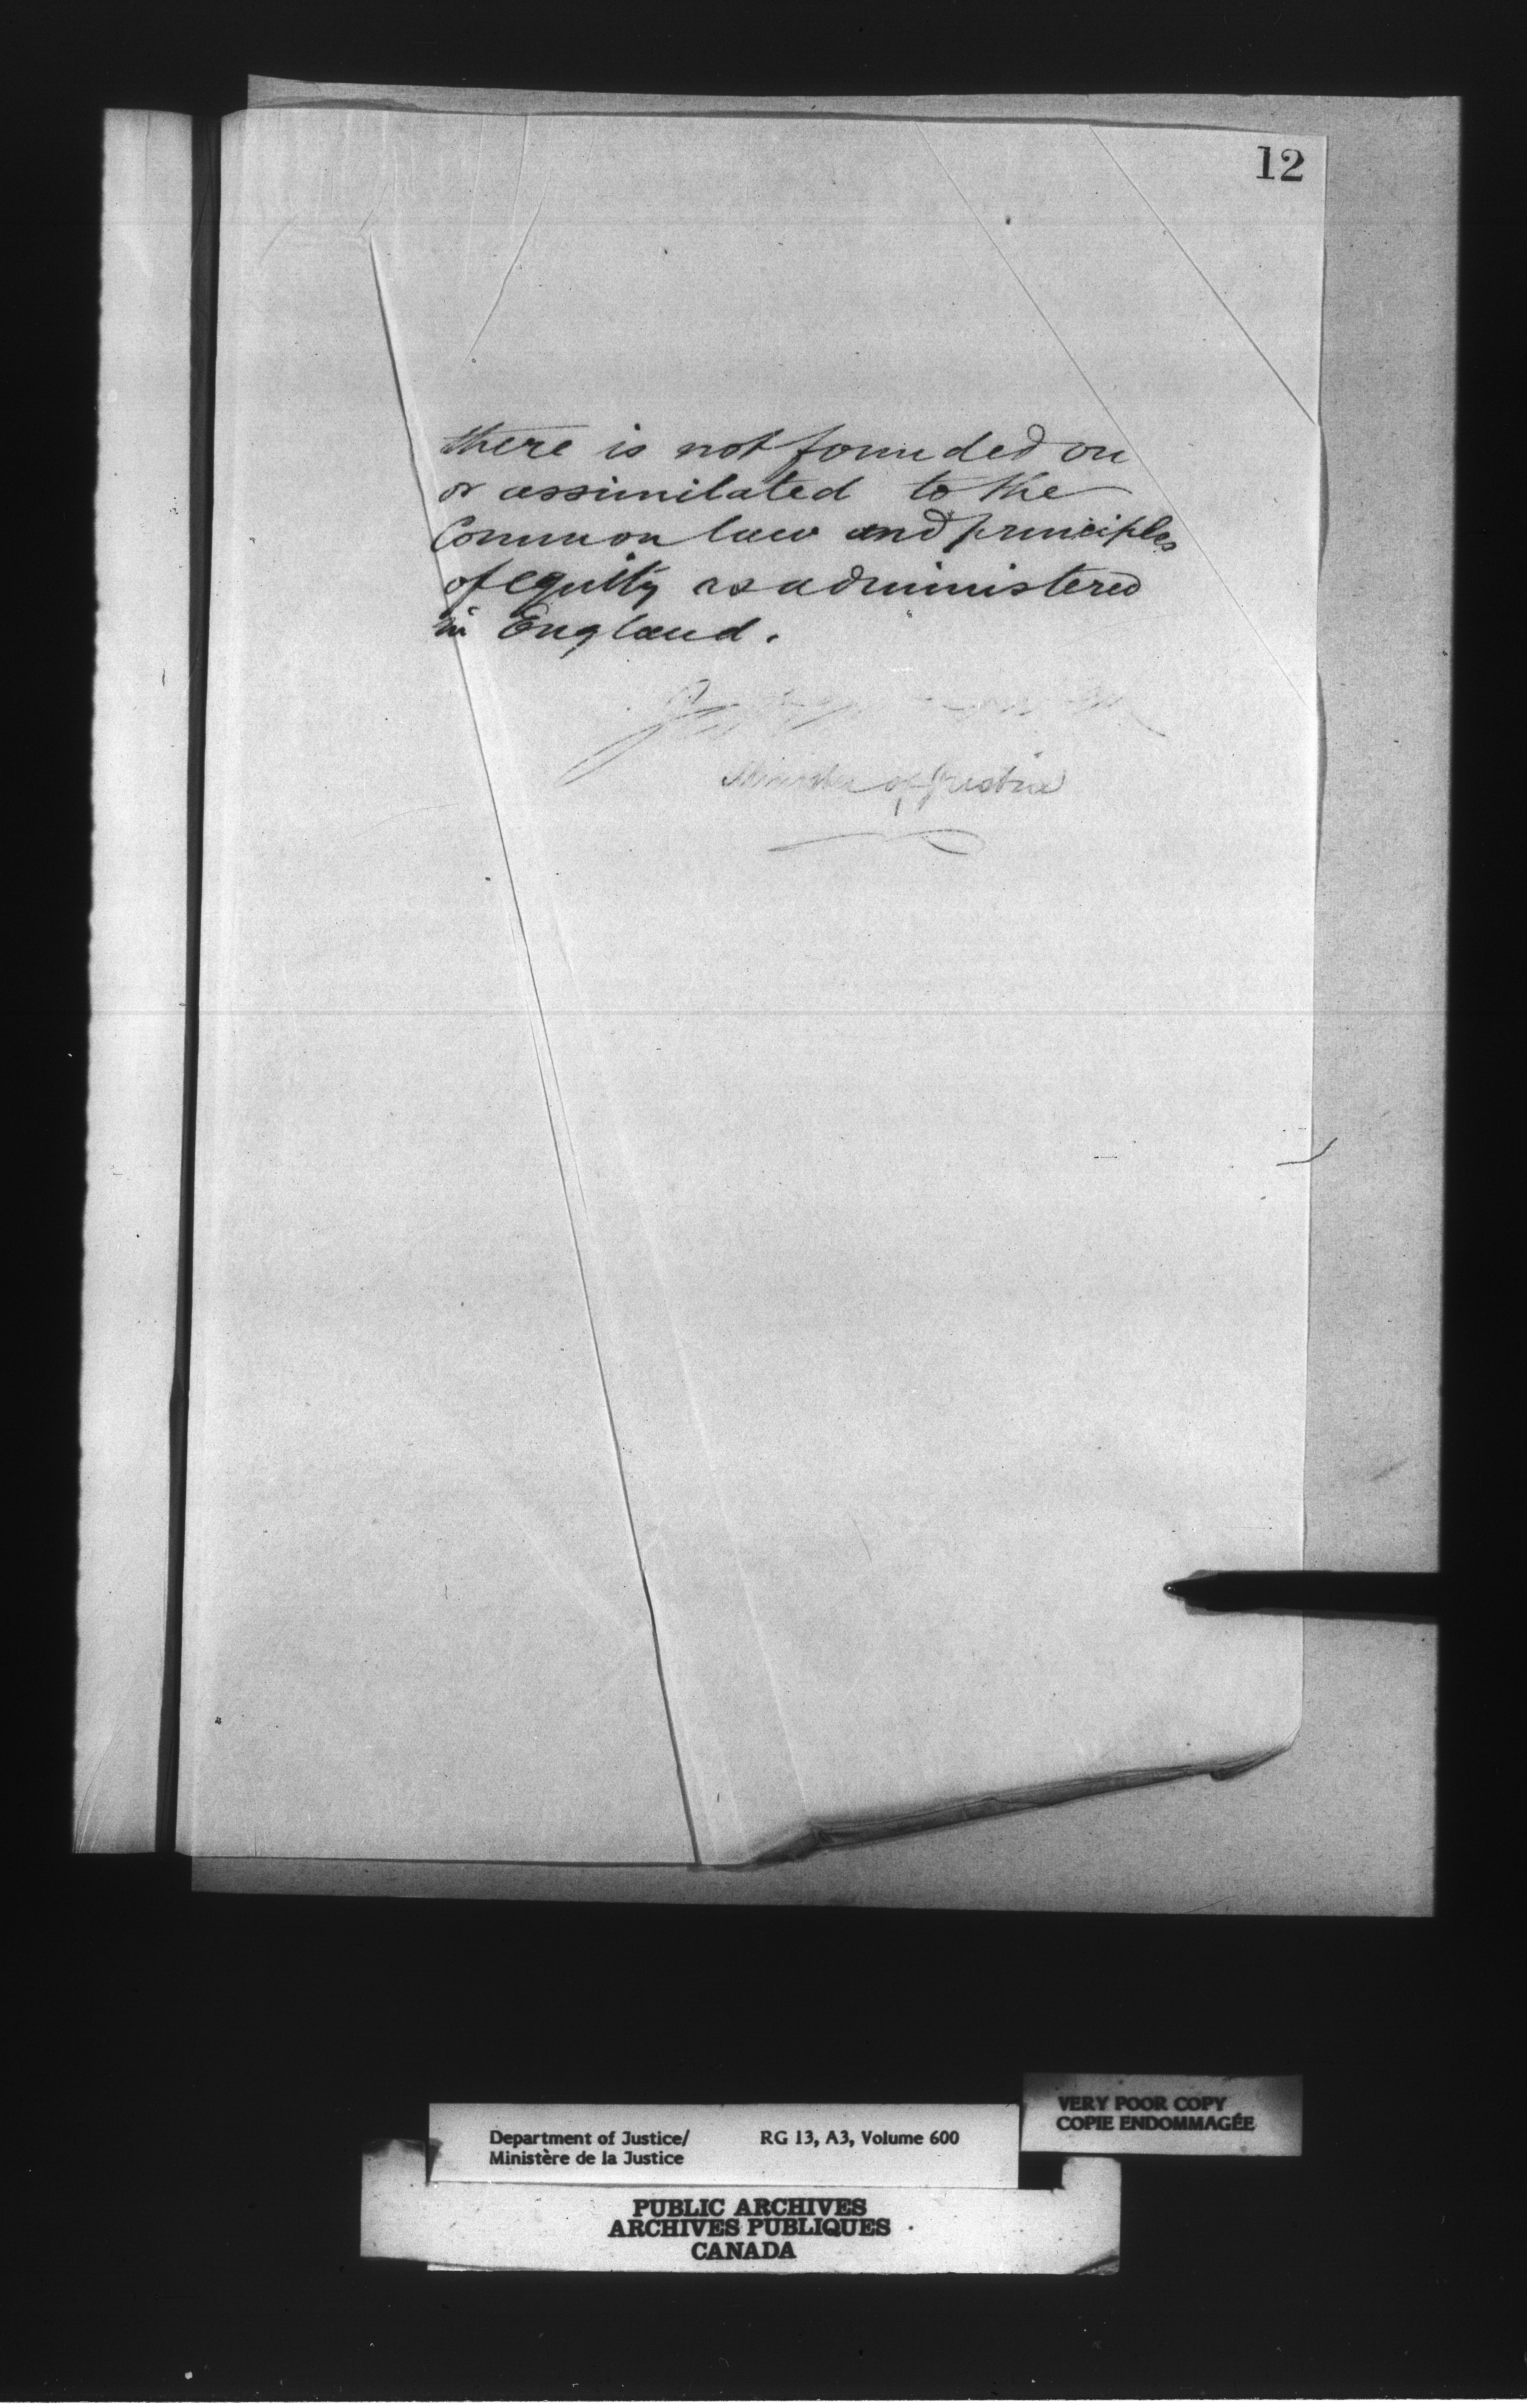 12
there is not founded on
or assimilated to the
Common law and principles
of equity as administered
in England.
Minister of Justice
VERY POOR COPY
COPIE ENDOMMAGÉE
Department of Justice/ RG 13, A3, Volume 600
Ministère de la Justice
PUBLIC ARCHIVES
ARCHIVES PUBLIQUES
CANADA